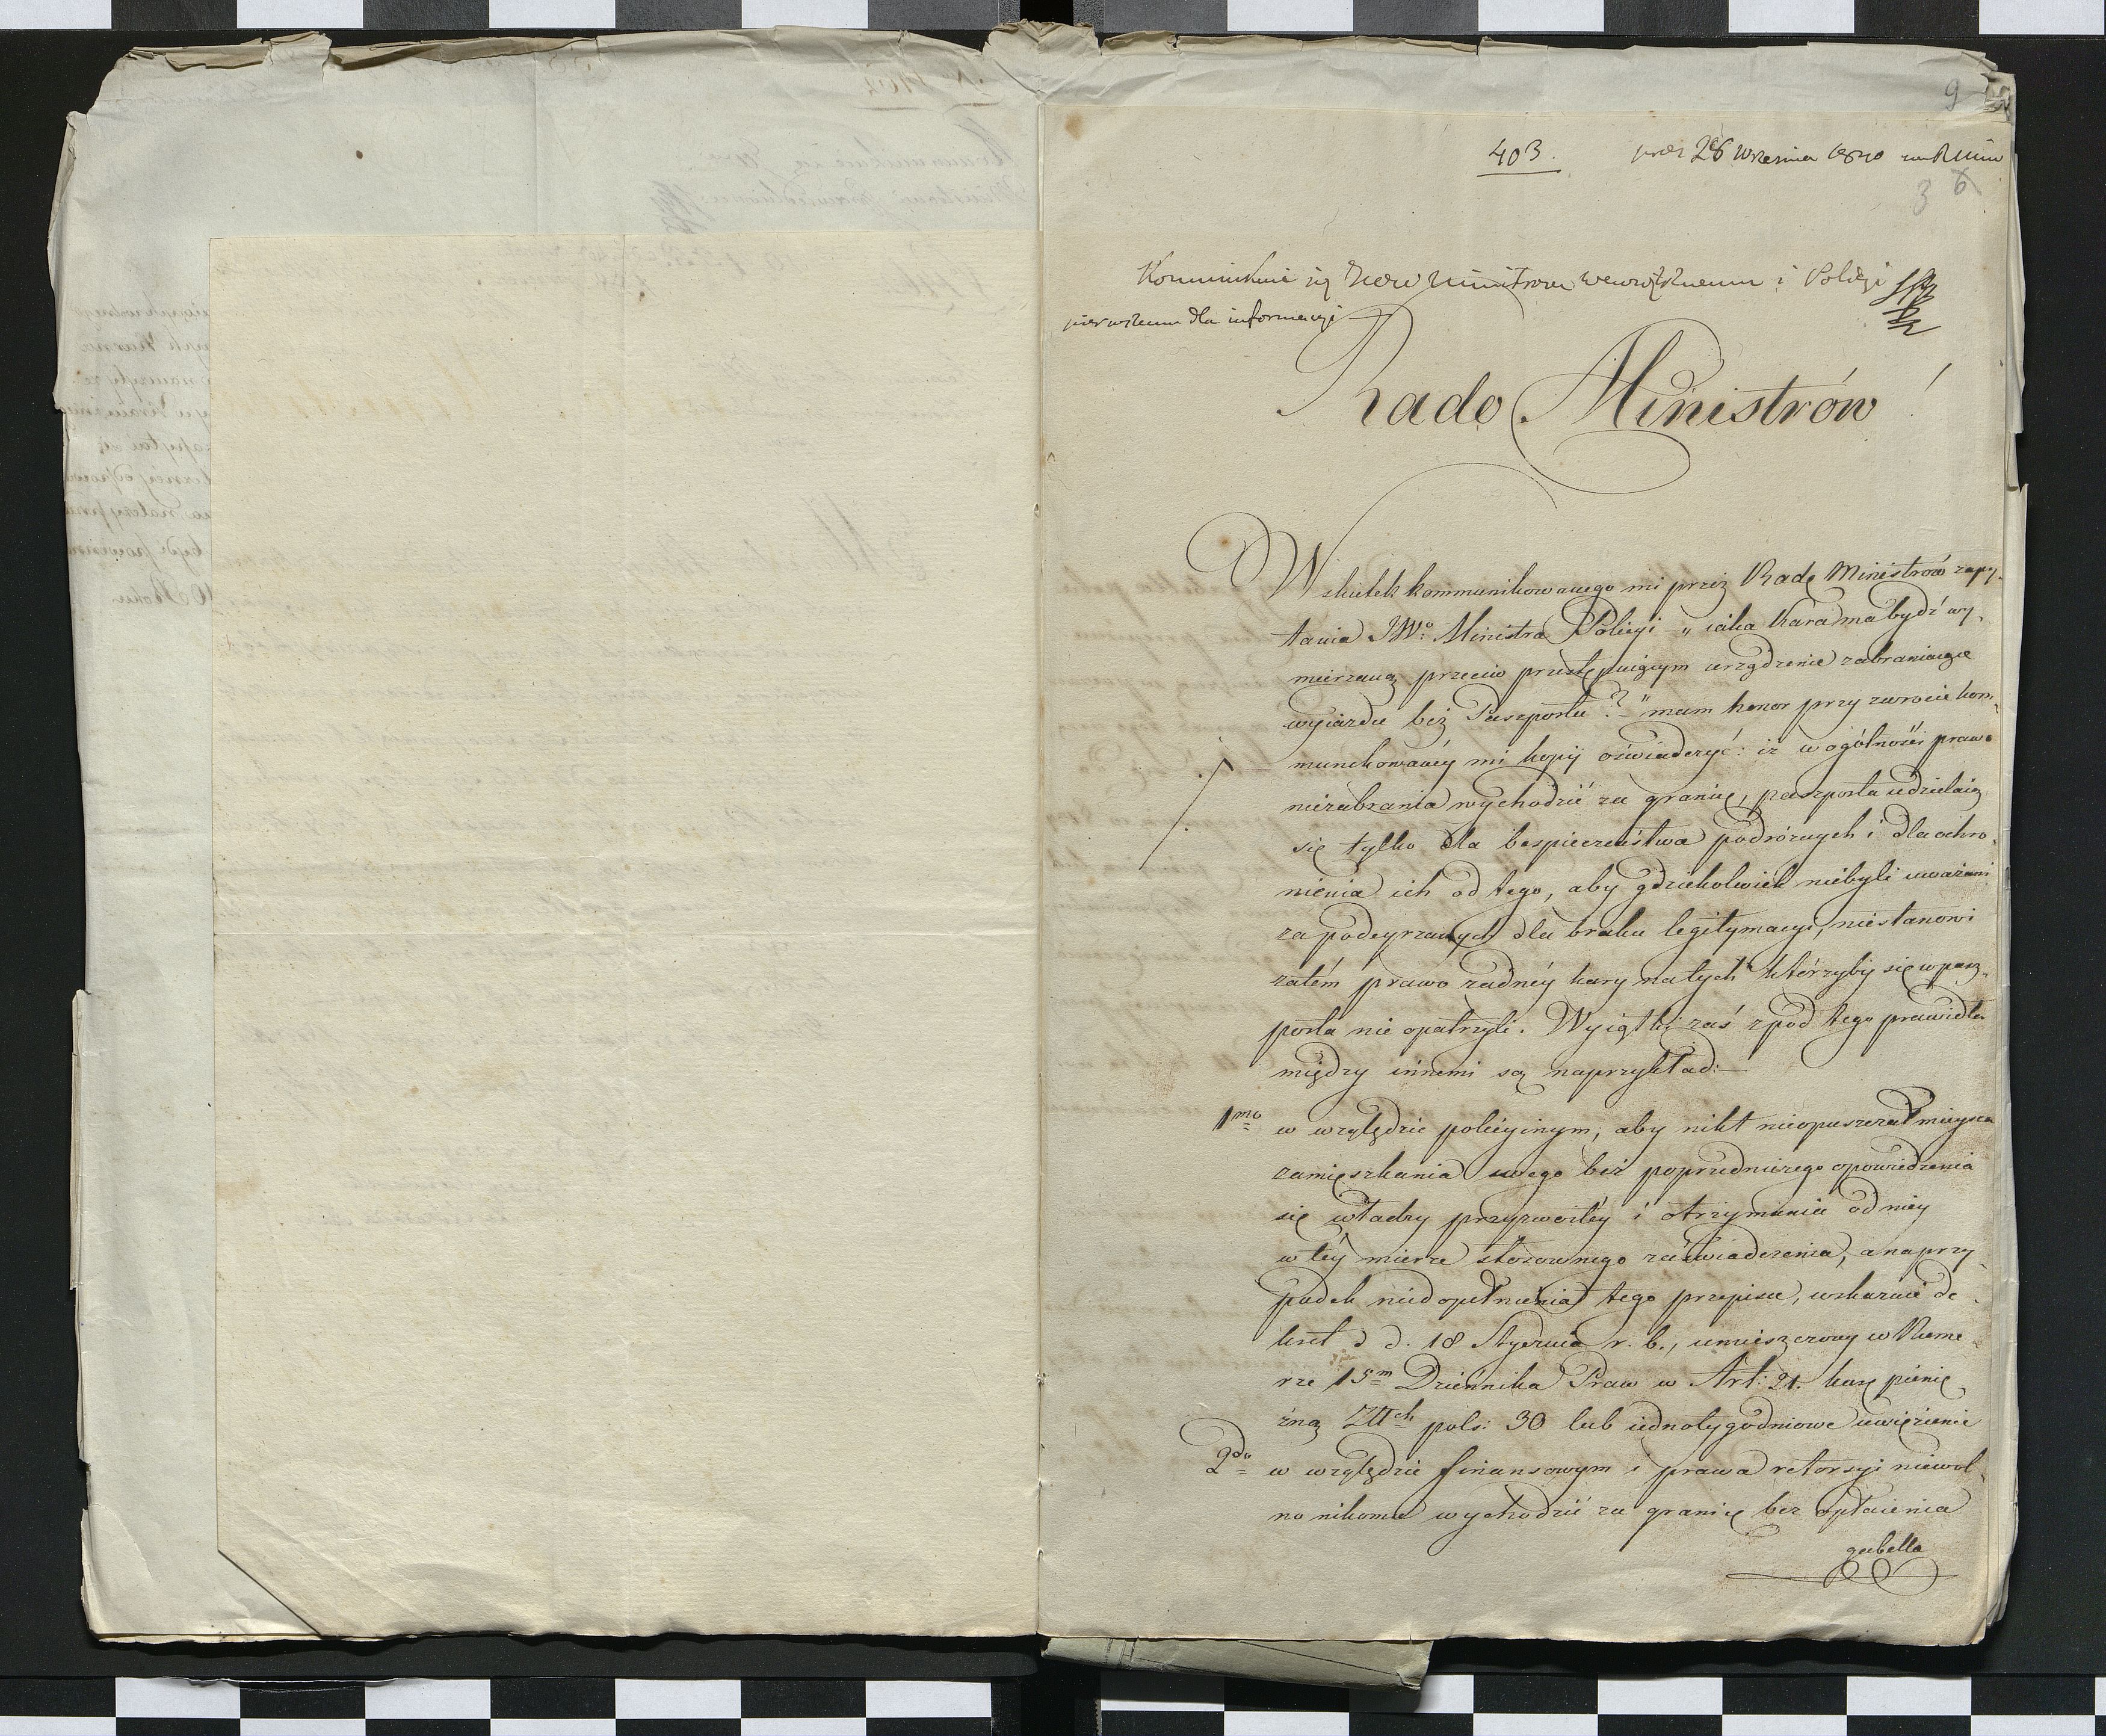 9
403.
prez 28 Wrzesnia 1810
3 6
Kommunikuie się JWW Ministrom Wewnętrznemu i Policyi
pierwszemu dla informacyi
Rado Ministrów!
W skutek kommunikowanego mi przez Radę Ministrów zapy-
tania JWo Ministra Policyi - „iaka Kara ma bydź wy-
mierzaną przeciw przestępuiącym urządzenie zabraniaiące
wyiazdu bez Paszportu?" - mam honor przy zwrocie kom-
munikowanéy mi kopij oświadczyć: iż w ogólności prawo
niezabrania wychodzić za granicę, paszporta udzielaią
się tylko dla bespieczeństwa podróżnych i dla ochro-
nienia ich od tego, aby gdziekolwiek niebyli uważani
za podeyrzanych dla braku legitymacyi, niestanowi
zatém prawo żadnéy kary na tych którzyby się w pasz-
porta nie opatrzyli. Wyiątki zaś z pod tego prawidła
między innemi są naprzykład:
1mo w względzie policyinym, aby nikt nieopuszczał mieysca
zamięszkania swego bez poprzedniczego opowiedzenia
się władzy przyzwoitéy i otrzymania od niey
w téy mierze stosownego zaświadczenia, a na przy-
padek niedopełnienia tego przepisu, wskazuie de-
kret d d. 18 Stycznia r. b., umieszczony w Nume-
rze 15m Dziennika Praw w Art: 21. karę pienię-
żną Złtch pols: 30 lub iednotygodniowe uwięzienie
2do w względzie finansowym i prawa retorsyi niewol-
no nikomu wychodzić za granicę bez opłacenia
gabella